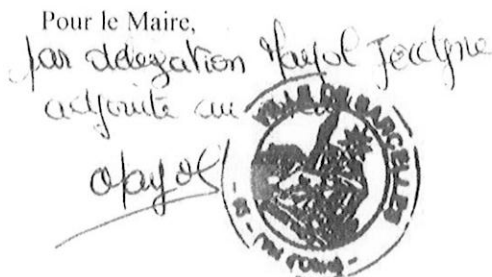 Pour le Maire,
par délégation Mayol Jocelyne
adjointe au
Mayol
VILLE DE SARCELLES